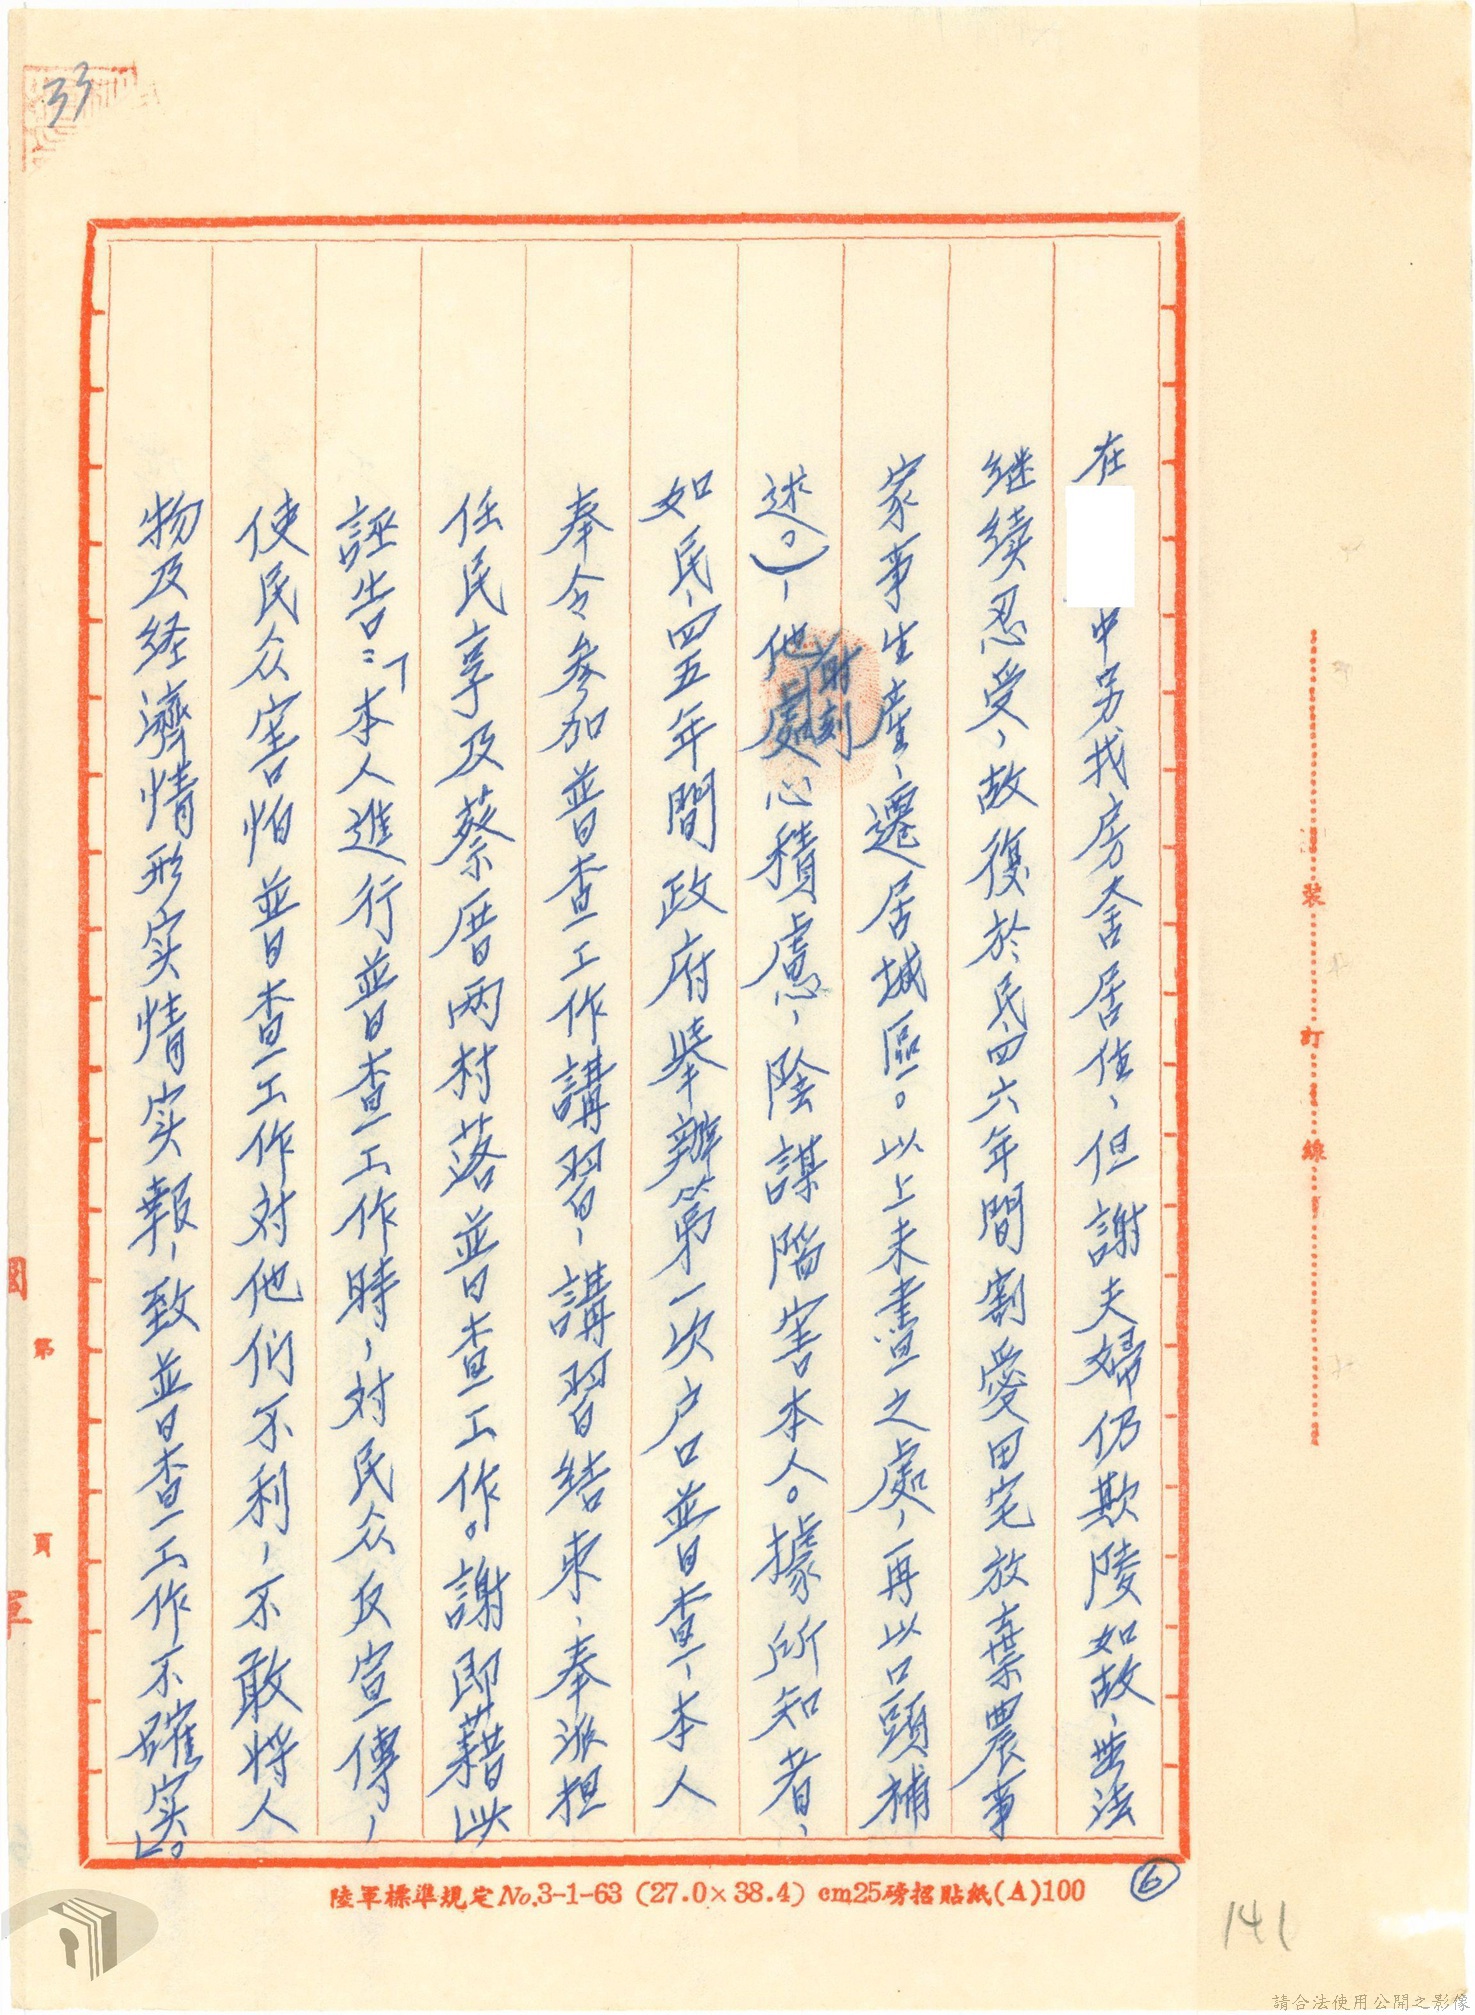 33
在　　中另找房舍居住，但謝夫婦仍欺陵如故，無法
继续忍受，故復於民、四六年間割愛田宅放棄農事
家事生產，遷居城區。以上未盡之處，再以口頭補
述。），他處心積慮，陰謀陷害本人。據所知者，
謝刻
如民、四五年間政府舉辦第一次户口普查，本人
奉令參加普查工作講習，講習结束，奉派担
任民享及蔡厝两村落普查工作。謝即藉此
誣告：「本人進行普查工作時，对民众反宣傳，
使民众害怕普查工作对他们不利，不敢将人
物及经濟情形实情实報，致普查工作不確实」。
⑥
陸軍標準規定No.3-1-63（27.0×38.4）cm25磅招貼紙(A)100
裝
訂
線
第
頁
國
軍
141
請合法使用公開之影像